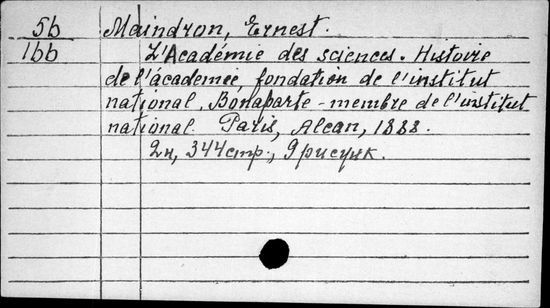 5b Maindron, Ernest.
1bb L'Académie des sciences. Histoire
de l'académee, fondation de l'institut
national, Bonaparte - membre de l'institut
national. Paris, Alcan, 1888.
2н, 344 стр., 9 рисунк.